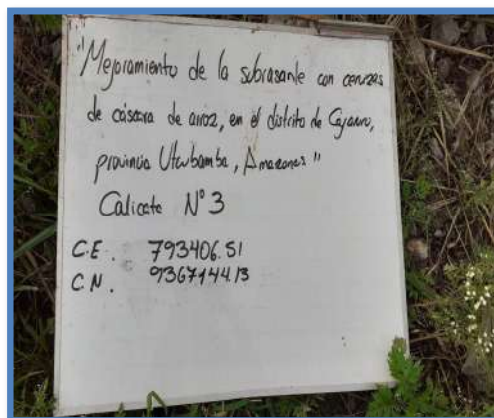 "Mejoramiento de la subrasante con cenizas
de cáscara de arroz, en el distrito de Cajaruro,
provincia Utcubamba, Amazonas"
Calicata N° 3
C.E. 793406.51
C.N. 9367144.13